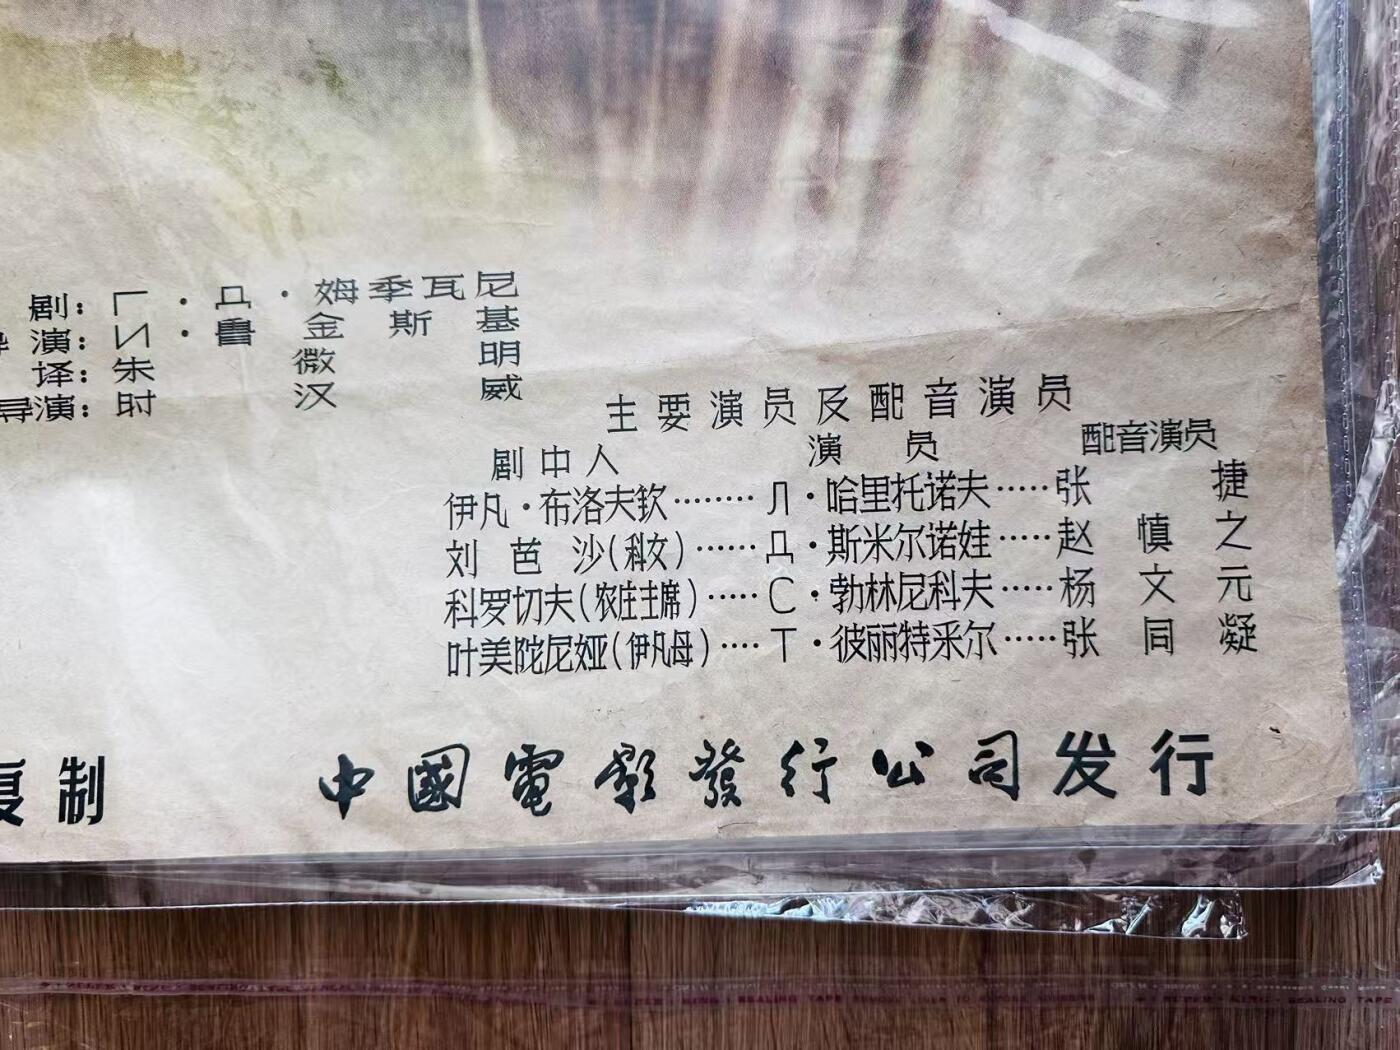 剧：Г·Д·姆季瓦尼
导演：И·鲁金斯基
译：朱微明
导演：时汉威
主要演员及配音演员
剧中人 演员 配音演员
伊凡·布洛夫钦········Л·哈里托诺夫·····张捷
刘芭沙(科女)······Д·斯米尔诺娃·····赵慎之
科罗切夫(农庄主席)·····С·勃林尼科夫·····杨文元
叶美陀尼娅(伊凡母)····Т·彼丽特采尔·····张同凝
复制 中國電影發行公司发行
SEALING TAPE
SEALING TAPE